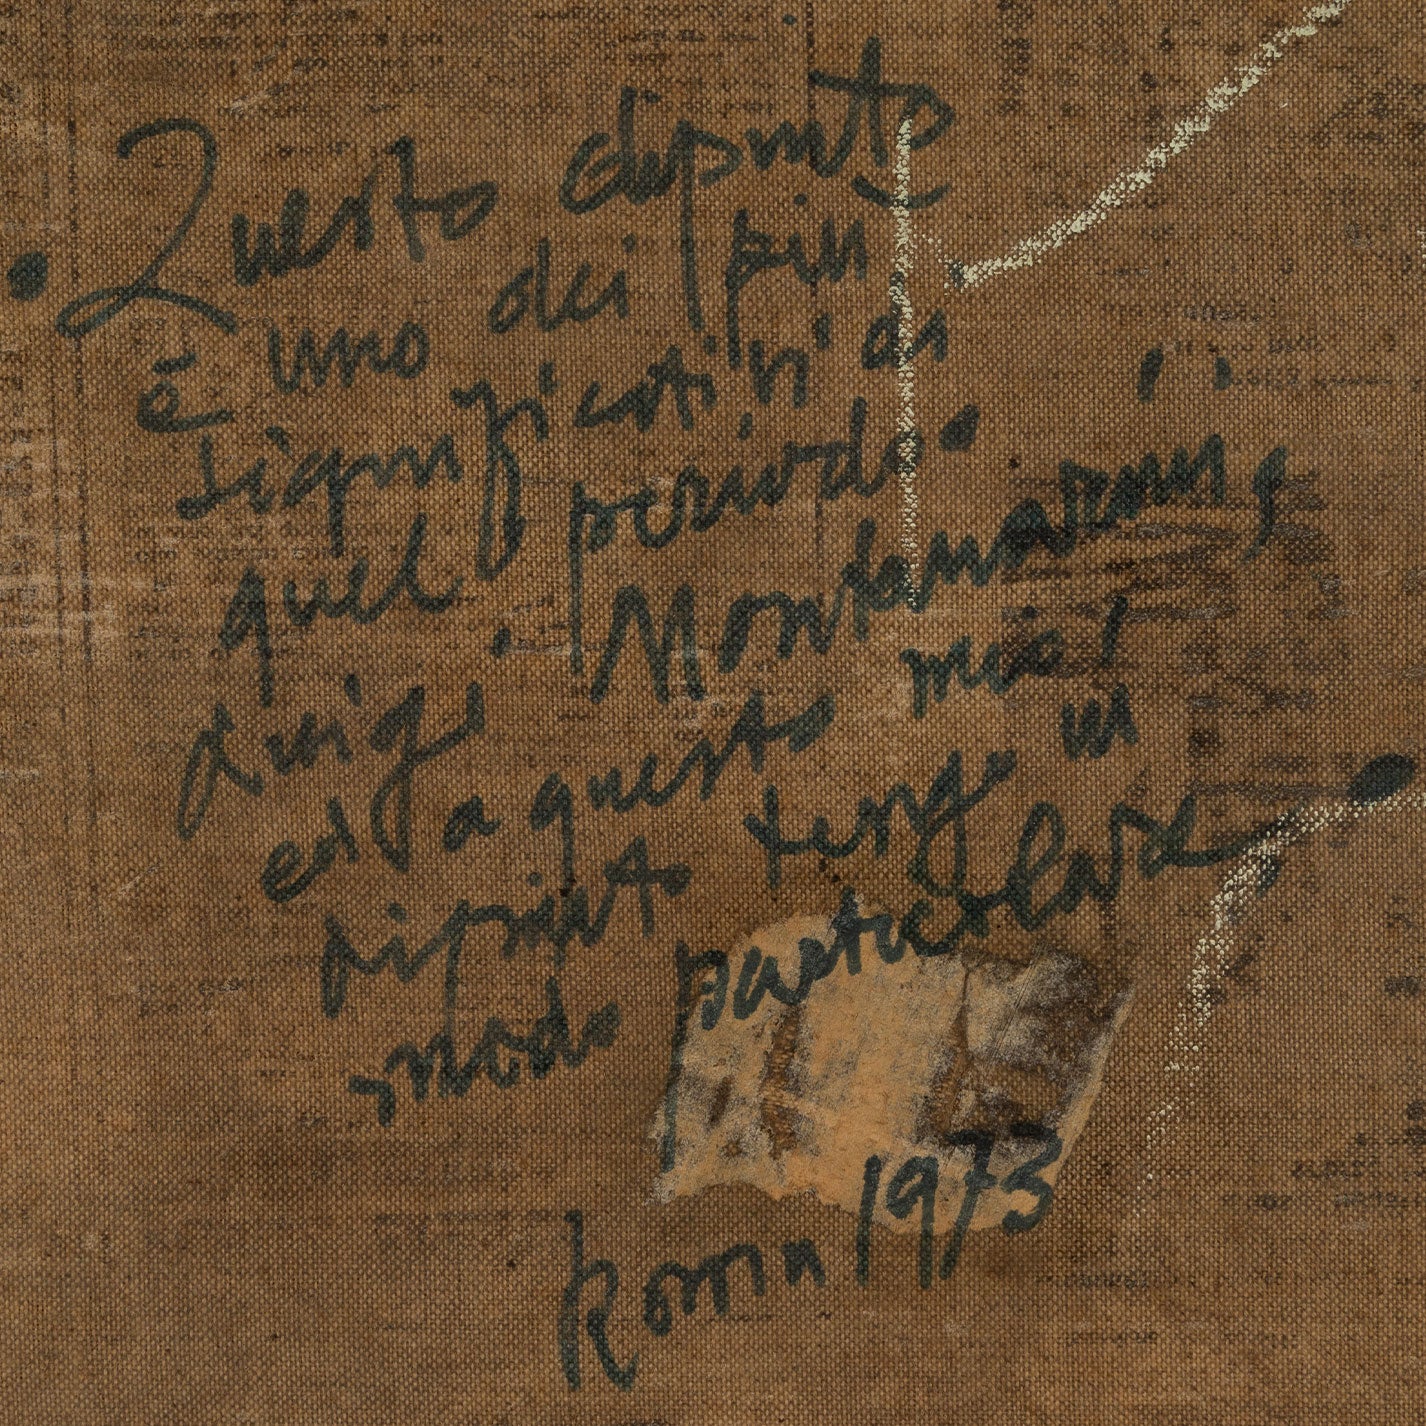 Questo dipinto
è uno dei più
significativi di
quel periodo.
Luigi Montanarini e
ed a questo mio
dipinto tengo in
modo particolare
1973